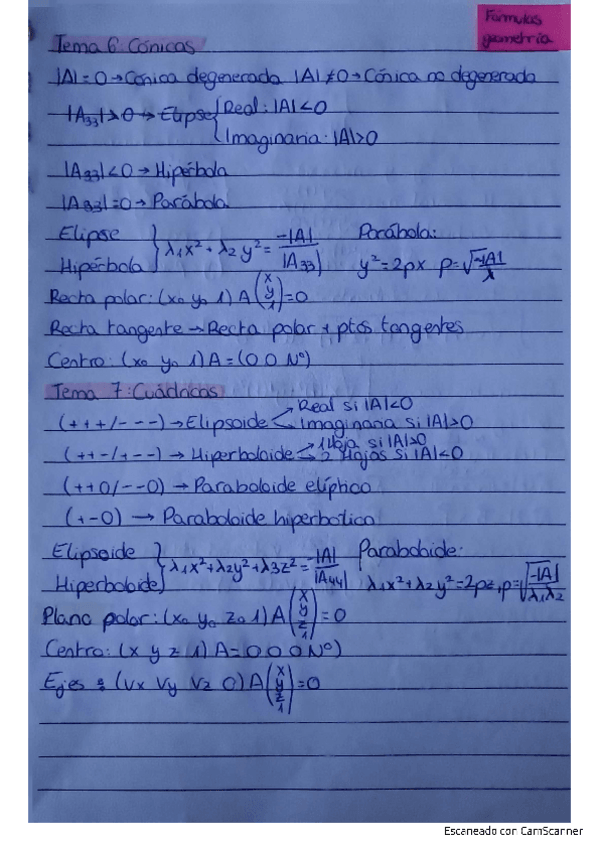 Fórmulas
geometría
Tema 6: Cónicas
|A|=0→Cónica degenerada |A|≠0→Cónica no degenerada
|A33|>0→Elipse { Real: |A|<0
Imaginaria: |A|>0
|A33|<0→Hipérbola
|A33|=0→Parábola
Elipse
Hipérbola } λ1x²+λ2y²= -|A| / |A33|
Parábola:
y²=2px p=√-|A|/λ
Recta polar: (x0 y0 1) A (x y 1) =0
Recta tangente→Recta polar + ptos tangentes
Centro: (x0 y0 1) A=(0 0 Nº)
Tema 7: Cuádricas
(+++/---)→Elipsoide Real si |A|<0
Imaginaria si |A|>0
(++-/+--)→Hiperboloide 1 Hoja si |A|>0
2 Hojas si |A|<0
(++0/--0)→Paraboloide elíptico
(+-0)→Paraboloide hiperbólico
Elipsoide
Hiperboloide } λ1x²+λ2y²+λ3z²= -|A| / |A44|
Paraboloide:
λ1x²+λ2y²=2pz, p=√-|A|/λ1λ2
Plano polar: (x0 y0 z0 1) A (x y z 1) =0
Centro: (x y z 1) A=0 0 0 Nº)
Ejes: (Vx Vy Vz 0) A (x y z 1) =0
Escaneado con CamScanner